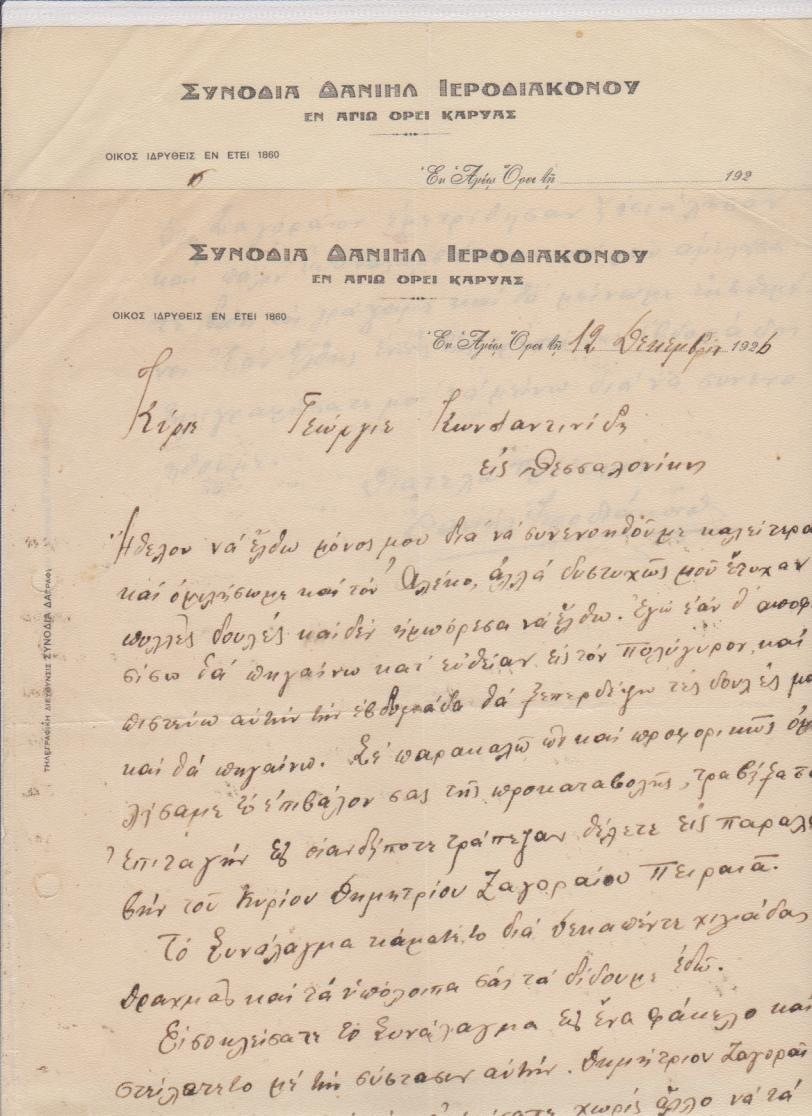 ΣΥΝΟΔΙΑ ΔΑΝΙΗΛ ΙΕΡΟΔΙΑΚΟΝΟΥ
ΕΝ ΑΓΙΩ ΟΡΕΙ ΚΑΡΥΑΣ
ΟΙΚΟΣ ΙΔΡΥΘΕΙΣ ΕΝ ΕΤΕΙ 1860
Ἐν Ἁγίῳ Ὄρει τῇ 192
ΣΥΝΟΔΙΑ ΔΑΝΙΗΛ ΙΕΡΟΔΙΑΚΟΝΟΥ
ΕΝ ΑΓΙΩ ΟΡΕΙ ΚΑΡΥΑΣ
ΟΙΚΟΣ ΙΔΡΥΘΕΙΣ ΕΝ ΕΤΕΙ 1860
Ἐν Ἁγίῳ Ὄρει τῇ 12 Δεκεμβρίου 1926
Κύριε Γεώργιε Κωνσταντινίδη
εἰς Θεσσαλονίκην
Ἤθελον νά ἔλθω μόνος μου δια νά συνενοηθοῦμε καλείτερα
καί ὁμιλήσωμε καί τόν Αλέκο, ἀλλά δυστυχῶς μοῦ ἔτυχαν
πολλές δουλές καί δέν ἠμπόρεσα νά ἔλθω. Ἐγώ ἐάν θ' αποφα
σίσω θά πηγαίνω κατ' εὐθείαν εἰς τόν Πολύγυρον, καί
πιστεύω αὐτήν τήν ἑβδομάδα θά ξεπερδέψω τές δουλές μο
καί θά πηγαίνω. Σέ παρακαλῶ καί προφορικῶς ὁμ
λήσαμε τό ἐπιβάλον σας τῆς προκαταβολῆς, τραβίξατο
Ἐπιταγήν ἐξ οἱανδήποτε τράπεζαν θέλετε εἰς παραλα
βήν τοῦ Κυρίου Δημητρίου Ζαγοραίου Πειραιᾶ.
Τό Συνάλαγμα κάματέ το διά δεκαπέντε χιλιάδας
δραχμάς καί τά ὑπόλοιπα σᾶς τά δίδουμε ἐδῶ.
Εἰσοκλείσατε τό Συνάλαγμα εἰς ἕνα φάκελο καί
στείλατέ το μέ τήν σύστασιν αὐτήν. Δημήτριον Ζαγοραῖ
χωρίς ἄλλο νά τά
ΤΗΛΕΓΡΑΦΙΚΗ ΔΙΕΥΘΥΝΣΙΣ ΣΥΝΟΔΙΑ